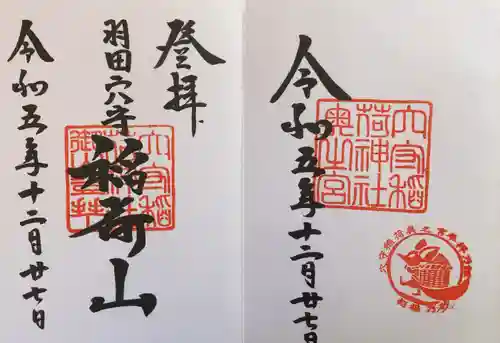 登拝
羽田穴守
稲荷山
令和五年十二月廿七日
穴守稲
荷神社
令和五年十二月廿七日
穴守稲
荷神社
奥之宮